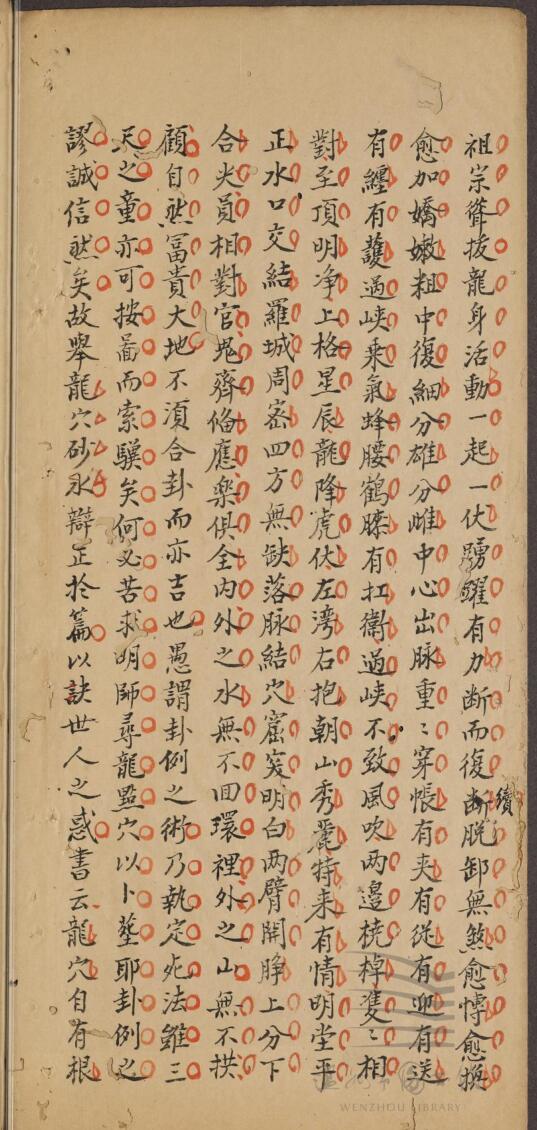 祖宗聳拔龍身活動一起一伏踴躍有力断而復断脫卸無煞愈愽愈換
續
愈加嬌嫩粗中復細分雄分雌中心出脉重〻穿帳有夹有従有迎有送
有纏有護過峡乗氣蜂腰鶴膝有扛衛過峡不致風吹两邉桡棹隻〻相
對至頂明净上格星辰龍降虎伏左湾右抱朝山秀麗特来有情明堂平
正水口交結羅城周宻四方無缺落脉結穴窟突明白两臂開睁上分下
合尖員相對官鬼齊俻應楽俱全内外之水無不回環裡外之山無不拱
顧自然冨貴大地不湏合卦而亦吉也愚謂卦例之術乃執定死法雖三
尺之童亦可按啚而索驥矣何必苦求明師尋龍㸃穴以卜塟耶卦例之
謬誠信然矣故舉龍穴砂水辯正於篇以訣世人之惑書云龍穴自有根
WENZHOU LIBRARY